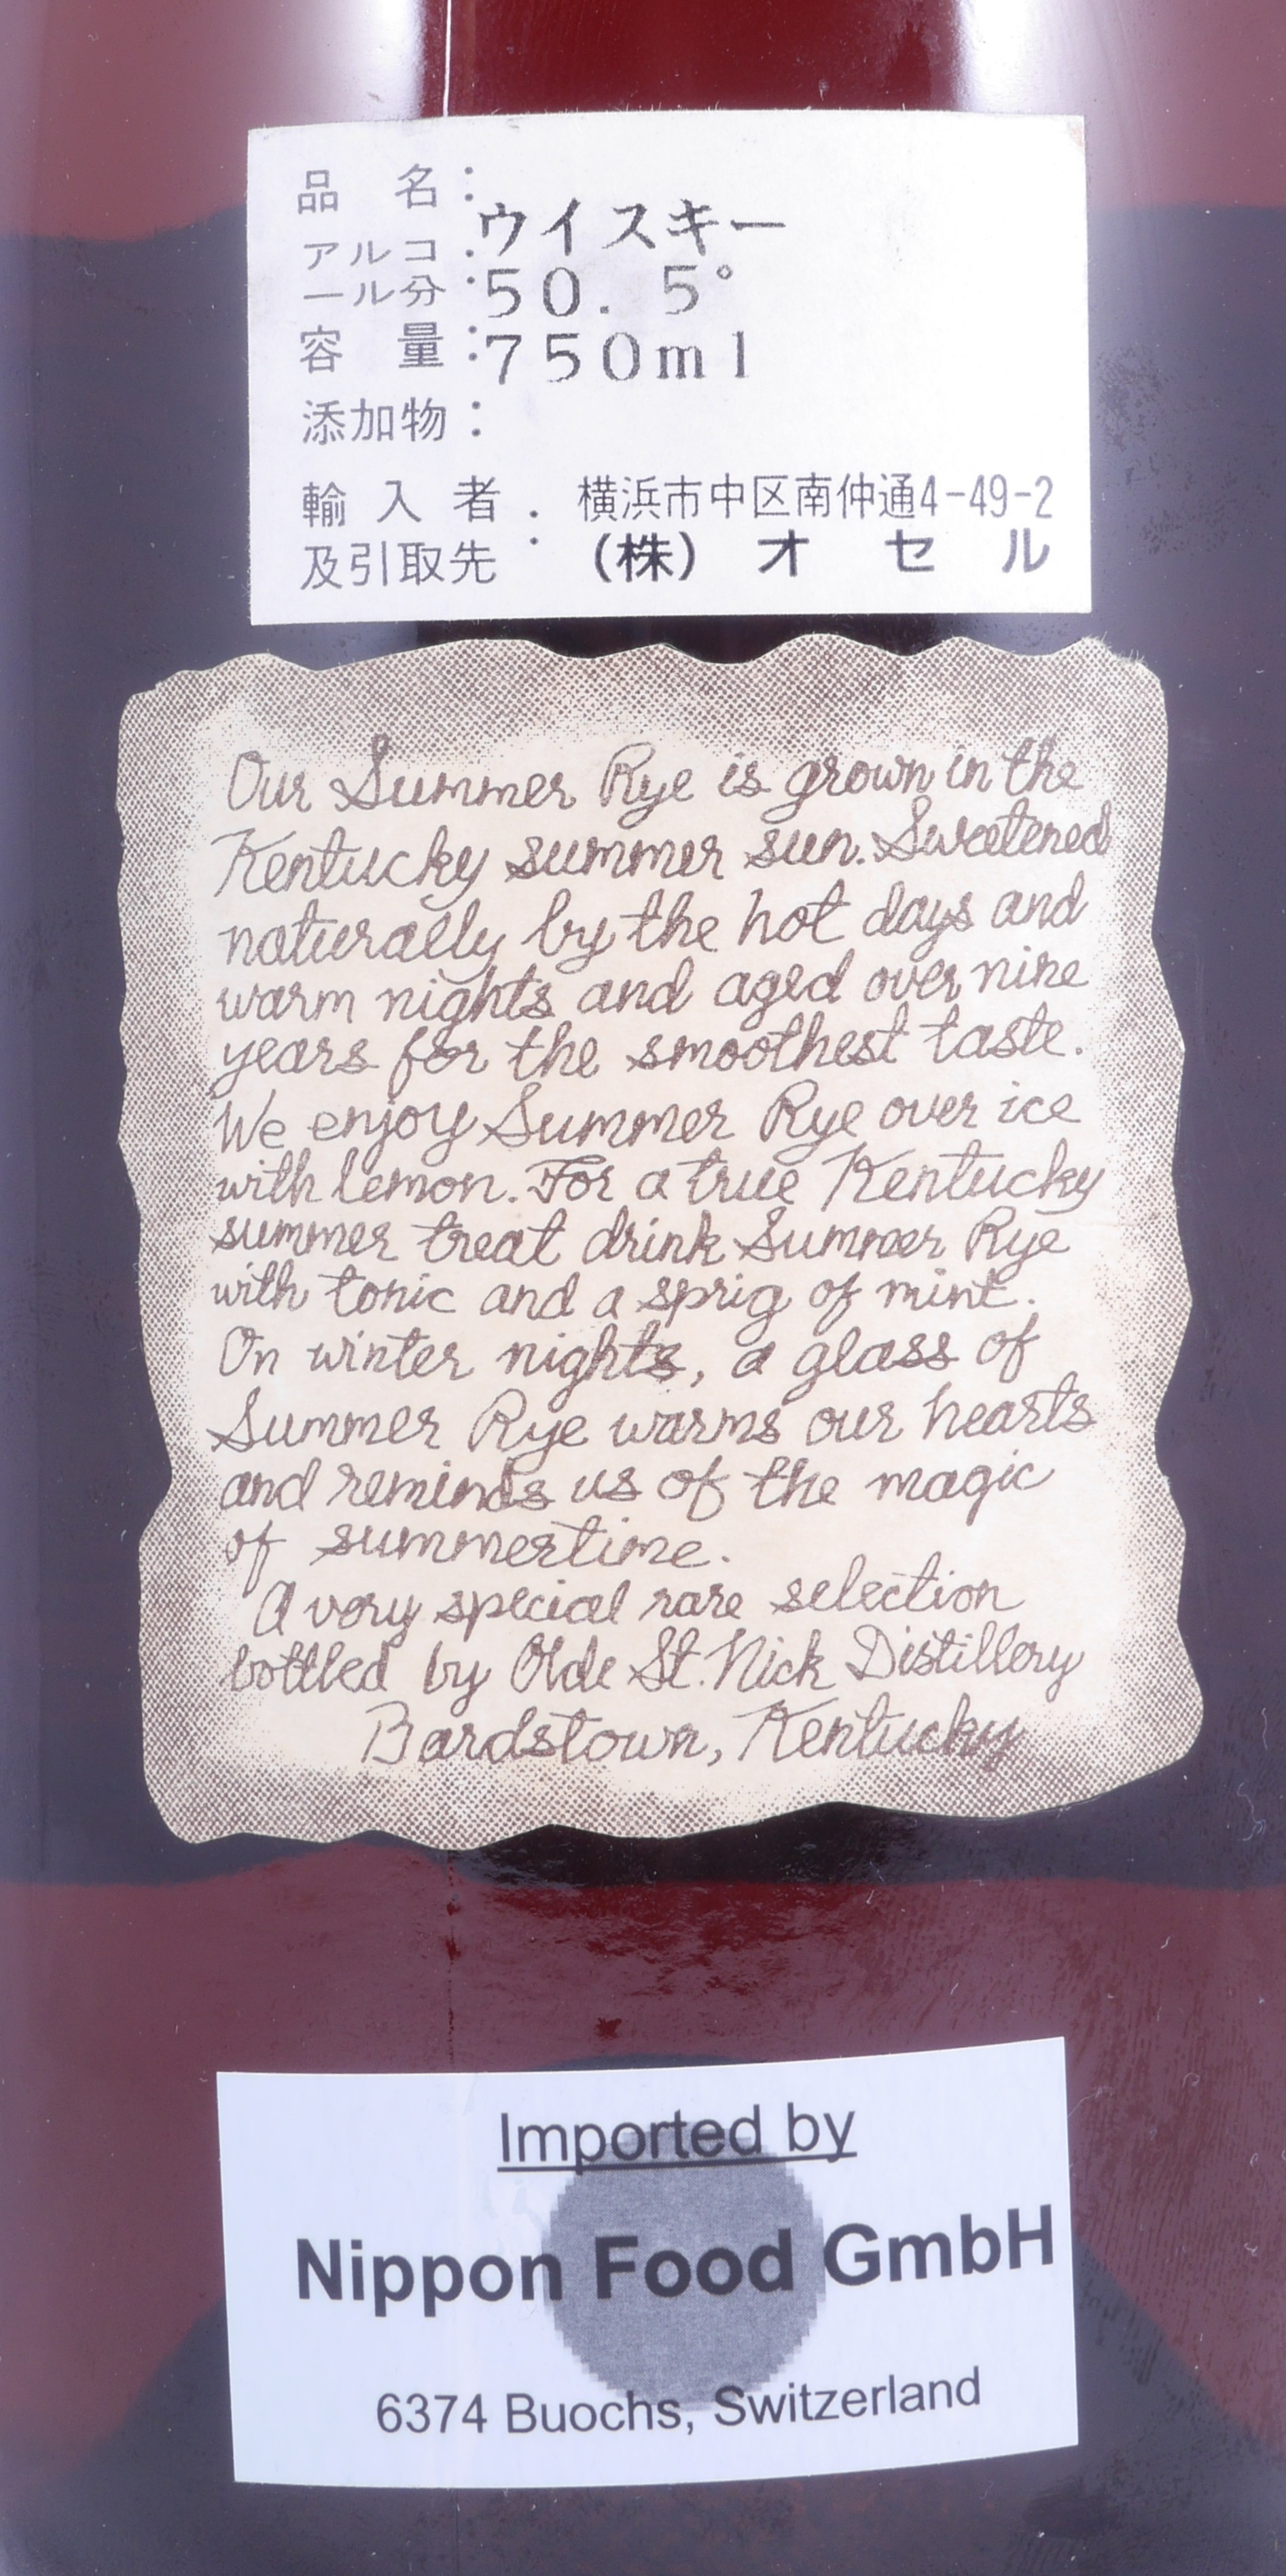 品 名：ウイスキー
アルコール分：50.5°
容 量：750ml
添加物：
輸入者及引取先：横浜市中区南仲通4-49-2
（株） オ セ ル
Our Summer Rye is grown in the
Kentucky summer sun. Sweetened
naturally by the hot days and
warm nights and aged over nine
years for the smoothest taste.
We enjoy Summer Rye over ice
with lemon. For a true Kentucky
summer treat drink Summer Rye
with tonic and a sprig of mint.
On winter nights, a glass of
Summer Rye warms our hearts
and reminds us of the magic
of summertime.
A very special rare selection
bottled by Olde St. Nick Distillery
Bardstown, Kentucky
Imported by
Nippon Food GmbH
6374 Buochs, Switzerland